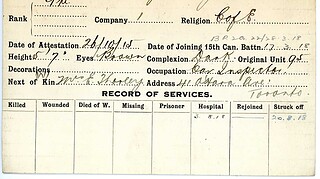 Rank Pte Company 1 Religion C of E
B.P. 2a 22/20.3.18
Date of Attestation 26/10/15 Date of Joining 15th Can. Battn. 17.3.18
Height 5' 7" Eyes Brown Complexion Dark Original Unit 95
Decorations Occupation Car Inspector
Next of Kin Mrs E Address 41 O'Hara Ave.
RECORD OF SERVICES. Toronto.
Killed Wounded Died of W. Missing Prisoner Hospital Rejoined Struck off
8.18 20.8.18